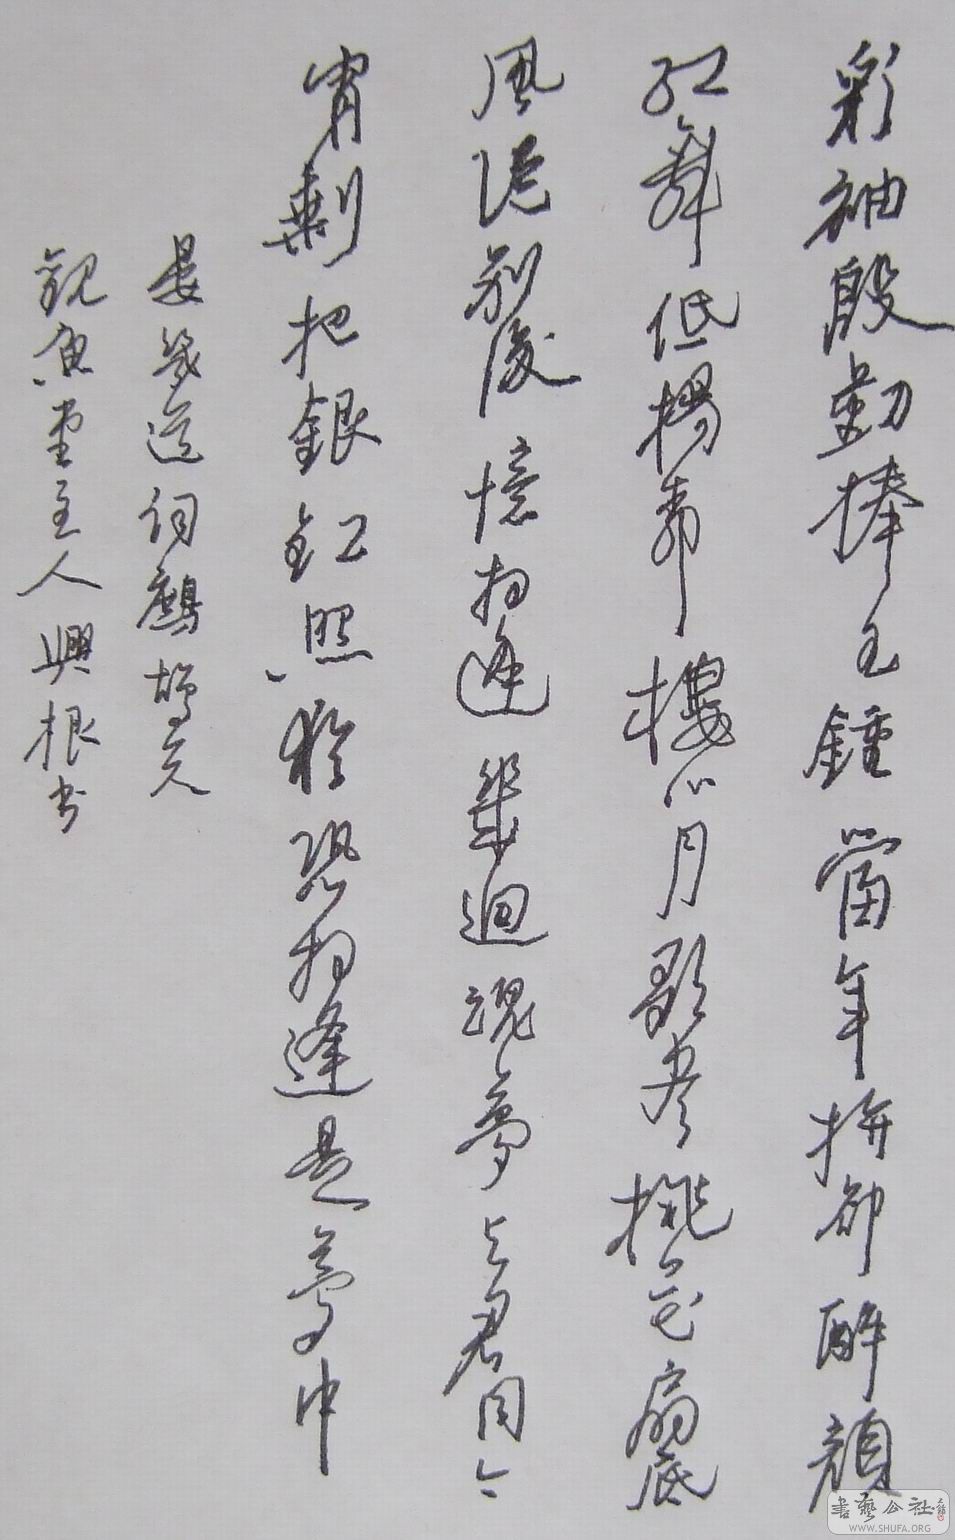 彩袖殷勤捧玉鍾當年拚卻醉顏
紅舞低楊柳樓心月歌盡桃花扇底
風從別後憶相逢幾迴魂夢與君同今
宵剩把銀釭照猶恐相逢是夢中
晏幾道詞鷓鴣天
觀魚堂主人興根書
書藝公社
WWW.SHUFA.ORG